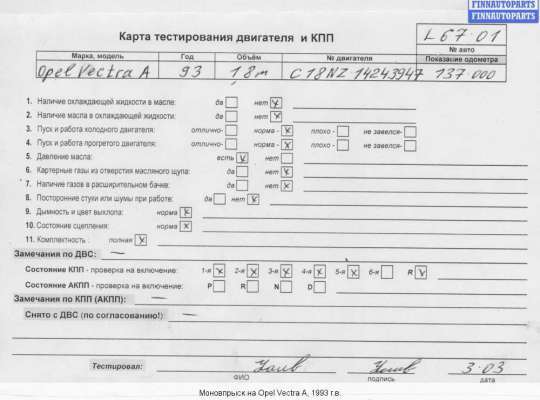 FINNAUTOPARTS
FINNAUTOPARTS
Карта тестирования двигателя и КПП
L67-01
№ авто
Марка, модель Год Объём № двигателя Показание одометра
Opel Vectra A 93 1.8m C18NZ-14243947 137.000
1. Наличие охлаждающей жидкости в масле: да нет x
2. Наличие масла в охлаждающей жидкости: да нет x
3. Пуск и работа холодного двигателя: отлично- норма - x плохо - не завелся-
4. Пуск и работа прогретого двигателя: отлично- норма - x плохо - не завелся-
5. Давление масла: есть x нет
6. Картерные газы из отверстия масляного щупа: да нет x
7. Наличие газов в расширительном бачке: да нет x
8. Посторонние стуки или шумы при работе: да нет x
9. Дымность и цвет выхлопа: норма x
10. Состояние сцепления: норма x
11. Комплектность : полная x
Замечания по ДВС: —
Состояние КПП - проверка на включение: 1-я x 2-я x 3-я x 4-я x 5-я x 6-я R v
Состояние АКПП - проверка на включение: P R N D
Замечания по КПП (АКПП): —
Снято с ДВС (по согласованию!): —
Тестировал: 3.03
ФИО подпись дата
Моновпрыск на Opel Vectra A, 1993 г.в.